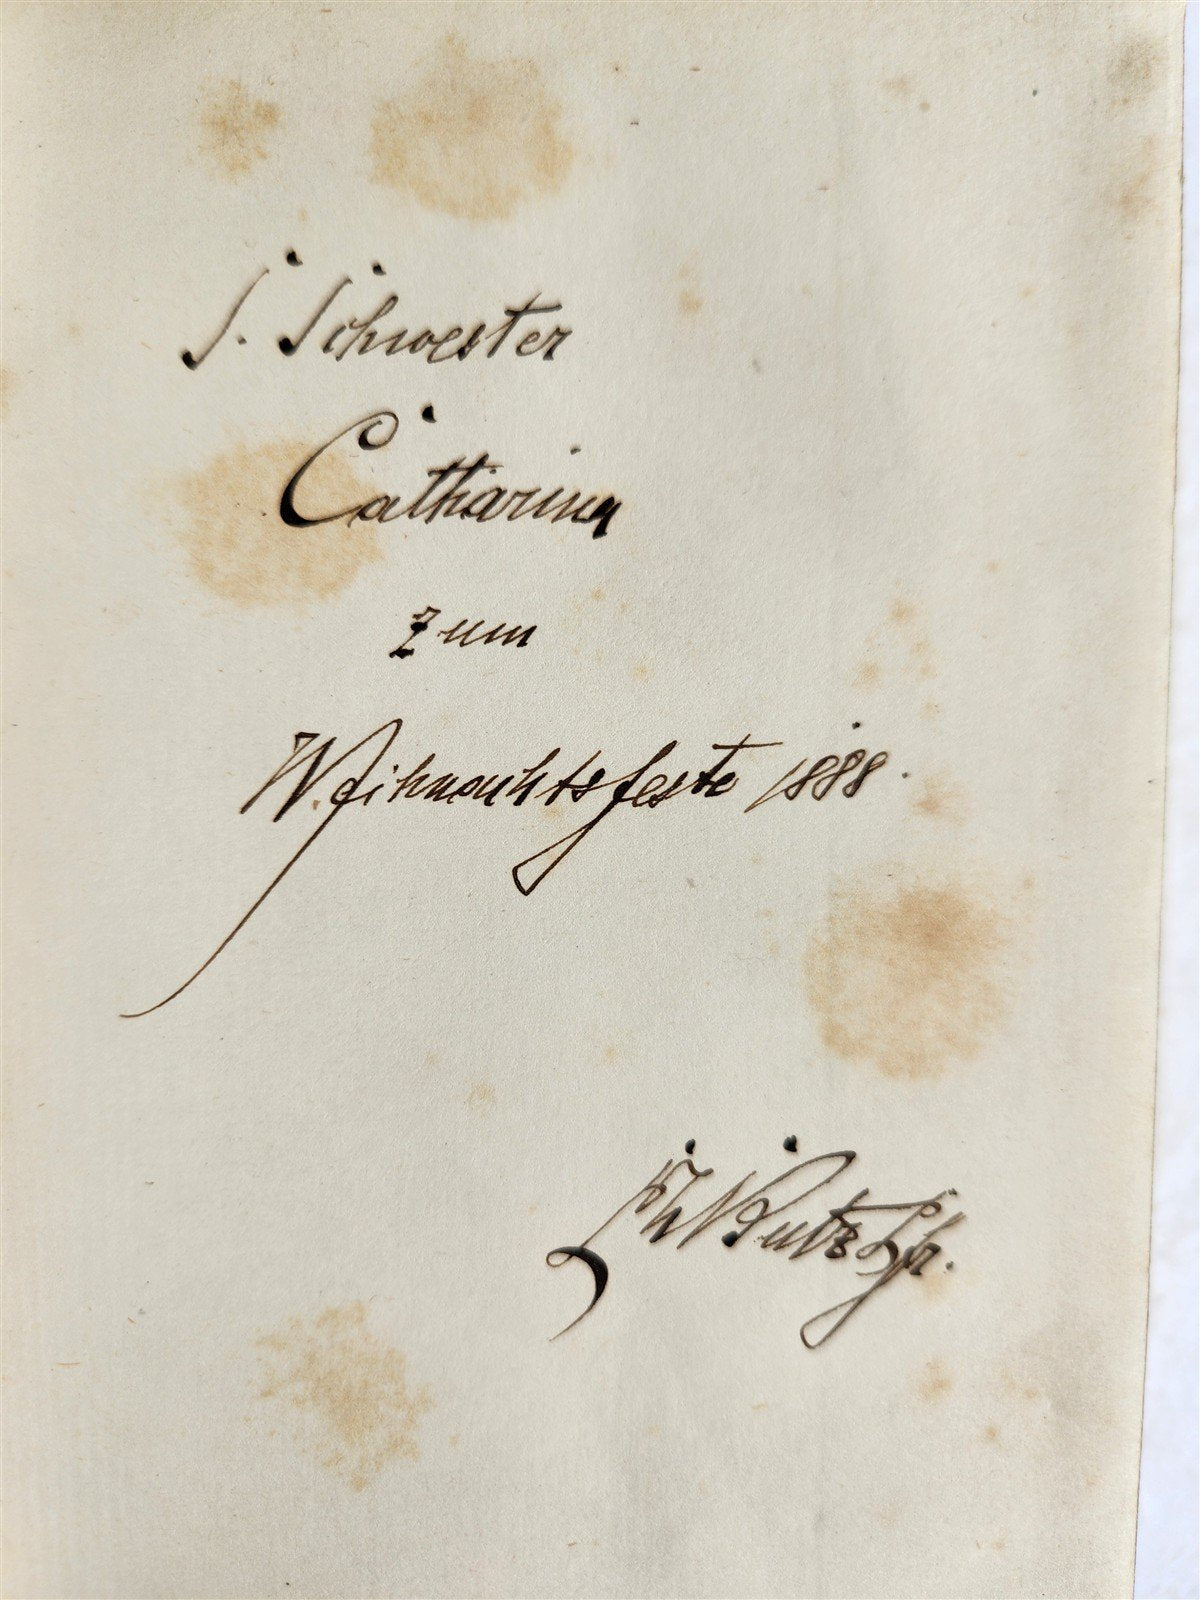 S. Schwester
Catharina
zum
Weihnachtsfeste 1888.